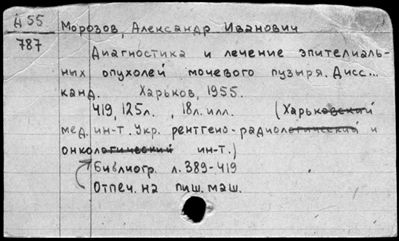 Д55
787
Морозов, Александр Иванович
Диагностика и лечение эпителиаль-
ных опухолей мочевого пузыря. Дисс...
канд. Харьков, 1955.
419, 125л. , 18л. илл. (Харьковский
мед. ин-т. Укр. рентгено-радиологический и
онкологический ин-т.)
библиогр. л. 389-419
Отпеч. на пиш. маш.